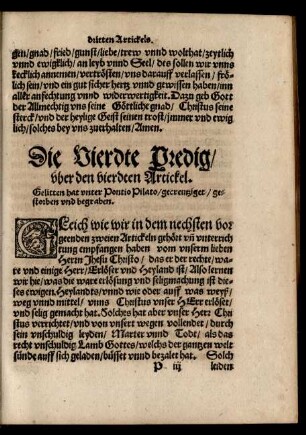 dritten Artickels.
gen/gnad/fried/gunst/liebe/trew vnnd wolthat/zeytlich
vnnd ewigklich/an leyb vnnd Seel/des sollen wir vnns
kecklich annemen/vertrösten/vns darauff verlassen/frö-
lich sein/vnd ein gut sicher hertz vnnd gewissen haben/inn
aller anfechtung vnnd widerwertigkeit. Dazu geb Gott
der Allmechtig vns seine Göttliche gnad/Christus seine
sterck/vnd der heylige Geist seinen trost/jmmer vnd ewig
lich/solches bey vns zuerhalten/Amen.
Die Vierdte Predig/
vber den vierdten Artickel.
Gelitten hat vnter Pontio Pilato/gecreutziget/ge-
storben vnd begraben.
GLeich wie wir in dem nechsten vor
geenden zweien Artickeln gehört vñ vnterrich
tung empfangen haben vom vnserm lieben
Herrn Jhesu Christo/das er der rechte/wa-
re vnd einige Herr/Erlöser vnd Heyland ist/Also lernen
wir hie/was die ware erlösung vnd seligmachung ist die-
ses ewigen Heylandts/vnnd wie oder auff was weyß/
weg vnnd mittel/vnns Christus vnser HErr erlöset/
vnd selig gemacht hat. Solches hat aber vnser Herr Chri
stus verrichtet/vnd von vnsert wegen vollendet/durch
sein vnschuldig leyden/Marter vnnd Todt/als das
recht vnschuldig Lamb Gottes/welchs der gantzen welt
sünde auff sich geladen/büsset vnnd bezalet hat. Solch
P iij leiden